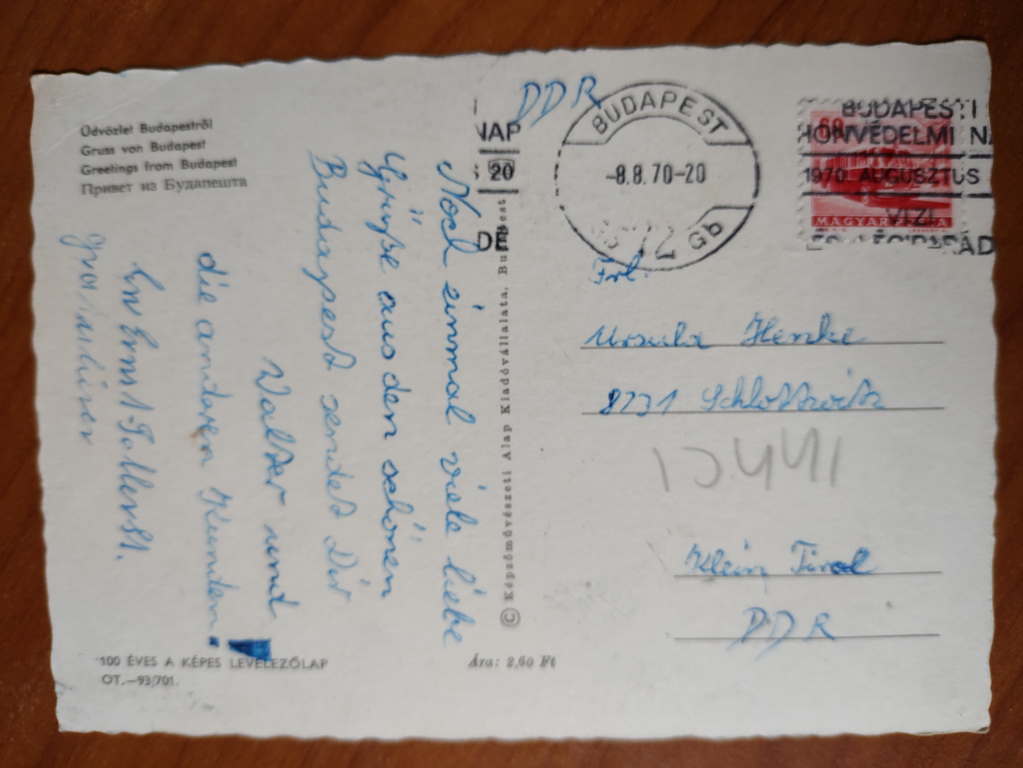 Üdvözlet Budapestről
Gruss von Budapest
Greetings from Budapest
Привет из Будапешта
DDR
NAP
20
DE
BUDAPEST
-8.8.70-20
72
Gb
BUDAPESTI
HONVÉDELMI NA
1970 AUGUSZTUS
VIZI
60
MAGYAR POSTA
Noch einmal viele liebe
Grüße aus den schönen
Budapest sendet Dir
Walter und
die anderen Kunden.
Frl.
Ursula Henke
8231 Schlottwitz
Klein Tirol
DDR
© Képzőművészeti Alap Kiadóvállalata, Budapest
100 ÉVES A KÉPES LEVELEZŐLAP
OT.—93/701.
Ára: 2,60 Ft